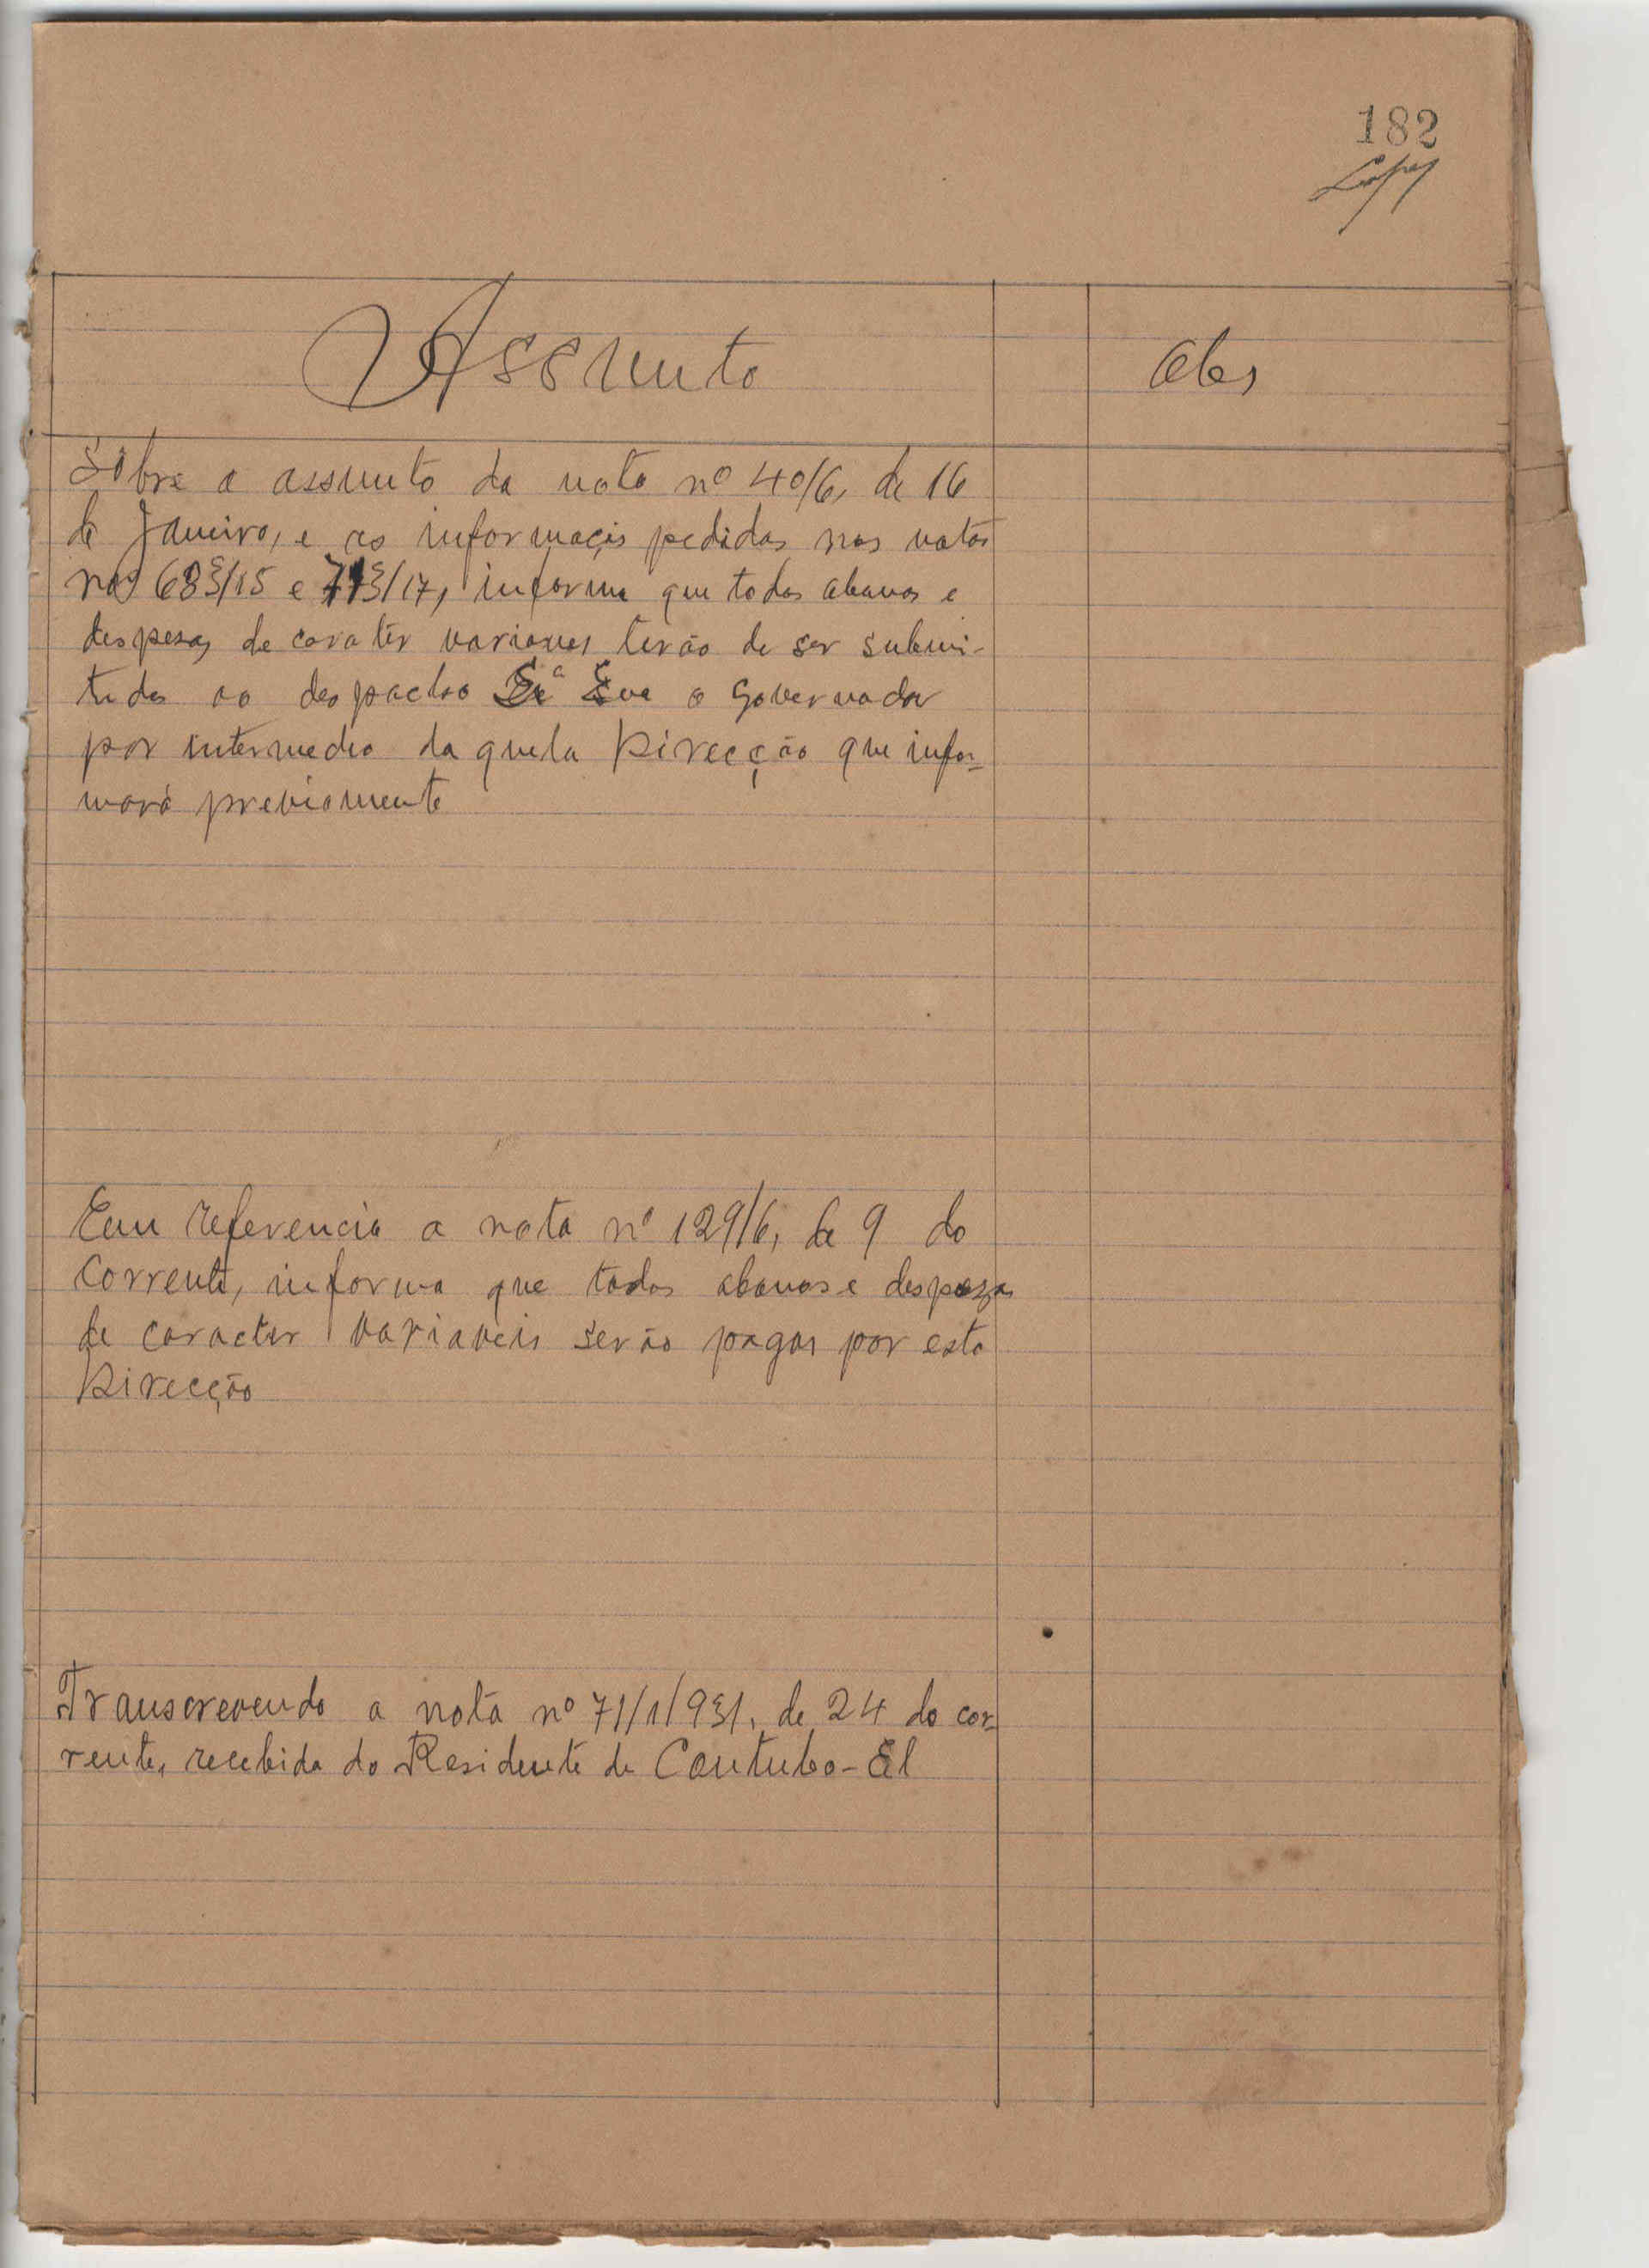 182
Lopes
Assunto
Obs
Sôbre o assunto da nota nº 40/6, de 16
de Janeiro, e as informações pedidas nas notas
nos e informa que todos abonos e
despesas de carater variaveis terão de ser subme-
tidos ao despacho Sª o Governador
por intermedio da quela Direcção que infor-
mará previamente
Em referencia a nota nº 129/6, de 9 do
corrente, informa que todos abonos e despezas
de caracter variaveis serão pagos por esta
Direcção
Transcrevendo a nota nº 71/1/931, de 24 do cor-
rente, recebida do Residente de Contubo-El